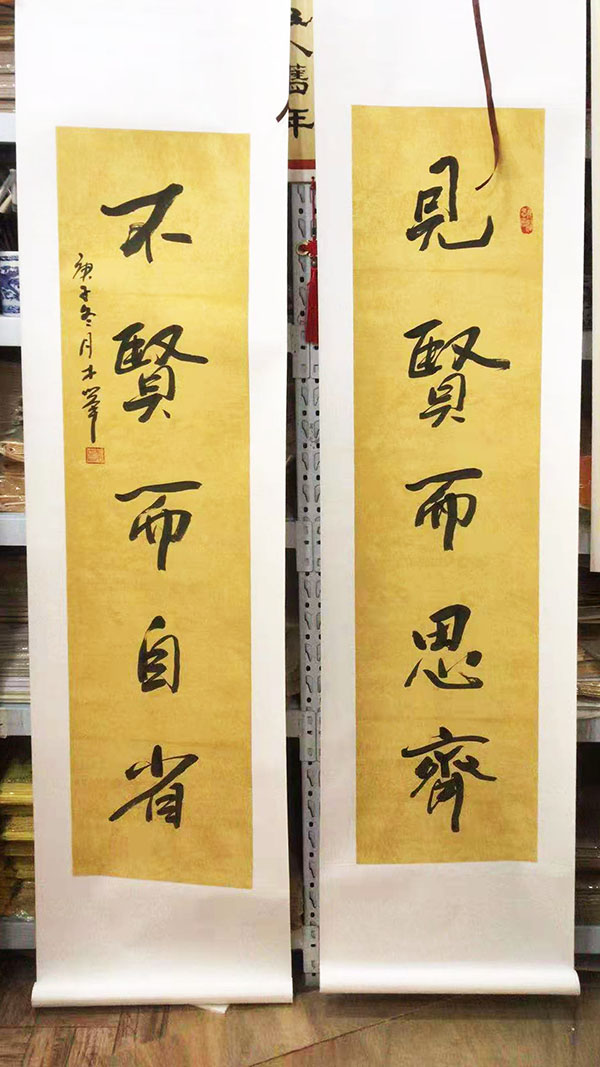 見賢而思齊
不賢而自省
庚子冬月木峯
人舊年